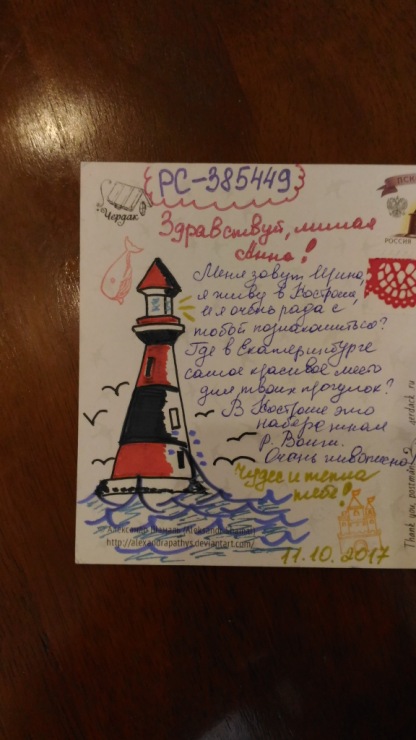 Чердак
РС-385449
РОССИЯ
Здравствуй, милая
Анна!
Меня зовут Ирина,
я живу в Костроме,
и я очень рада с
тобой познакомиться?
Где в Екатеринбурге
самое красивое место
для твоих прогулок?
В Костроме это
набережная
р. Волги.
Очень живописно
Чудес и тепла
тебе!
11.10.2017
http://alexandrapathys.deviantart.com/
Thank you,